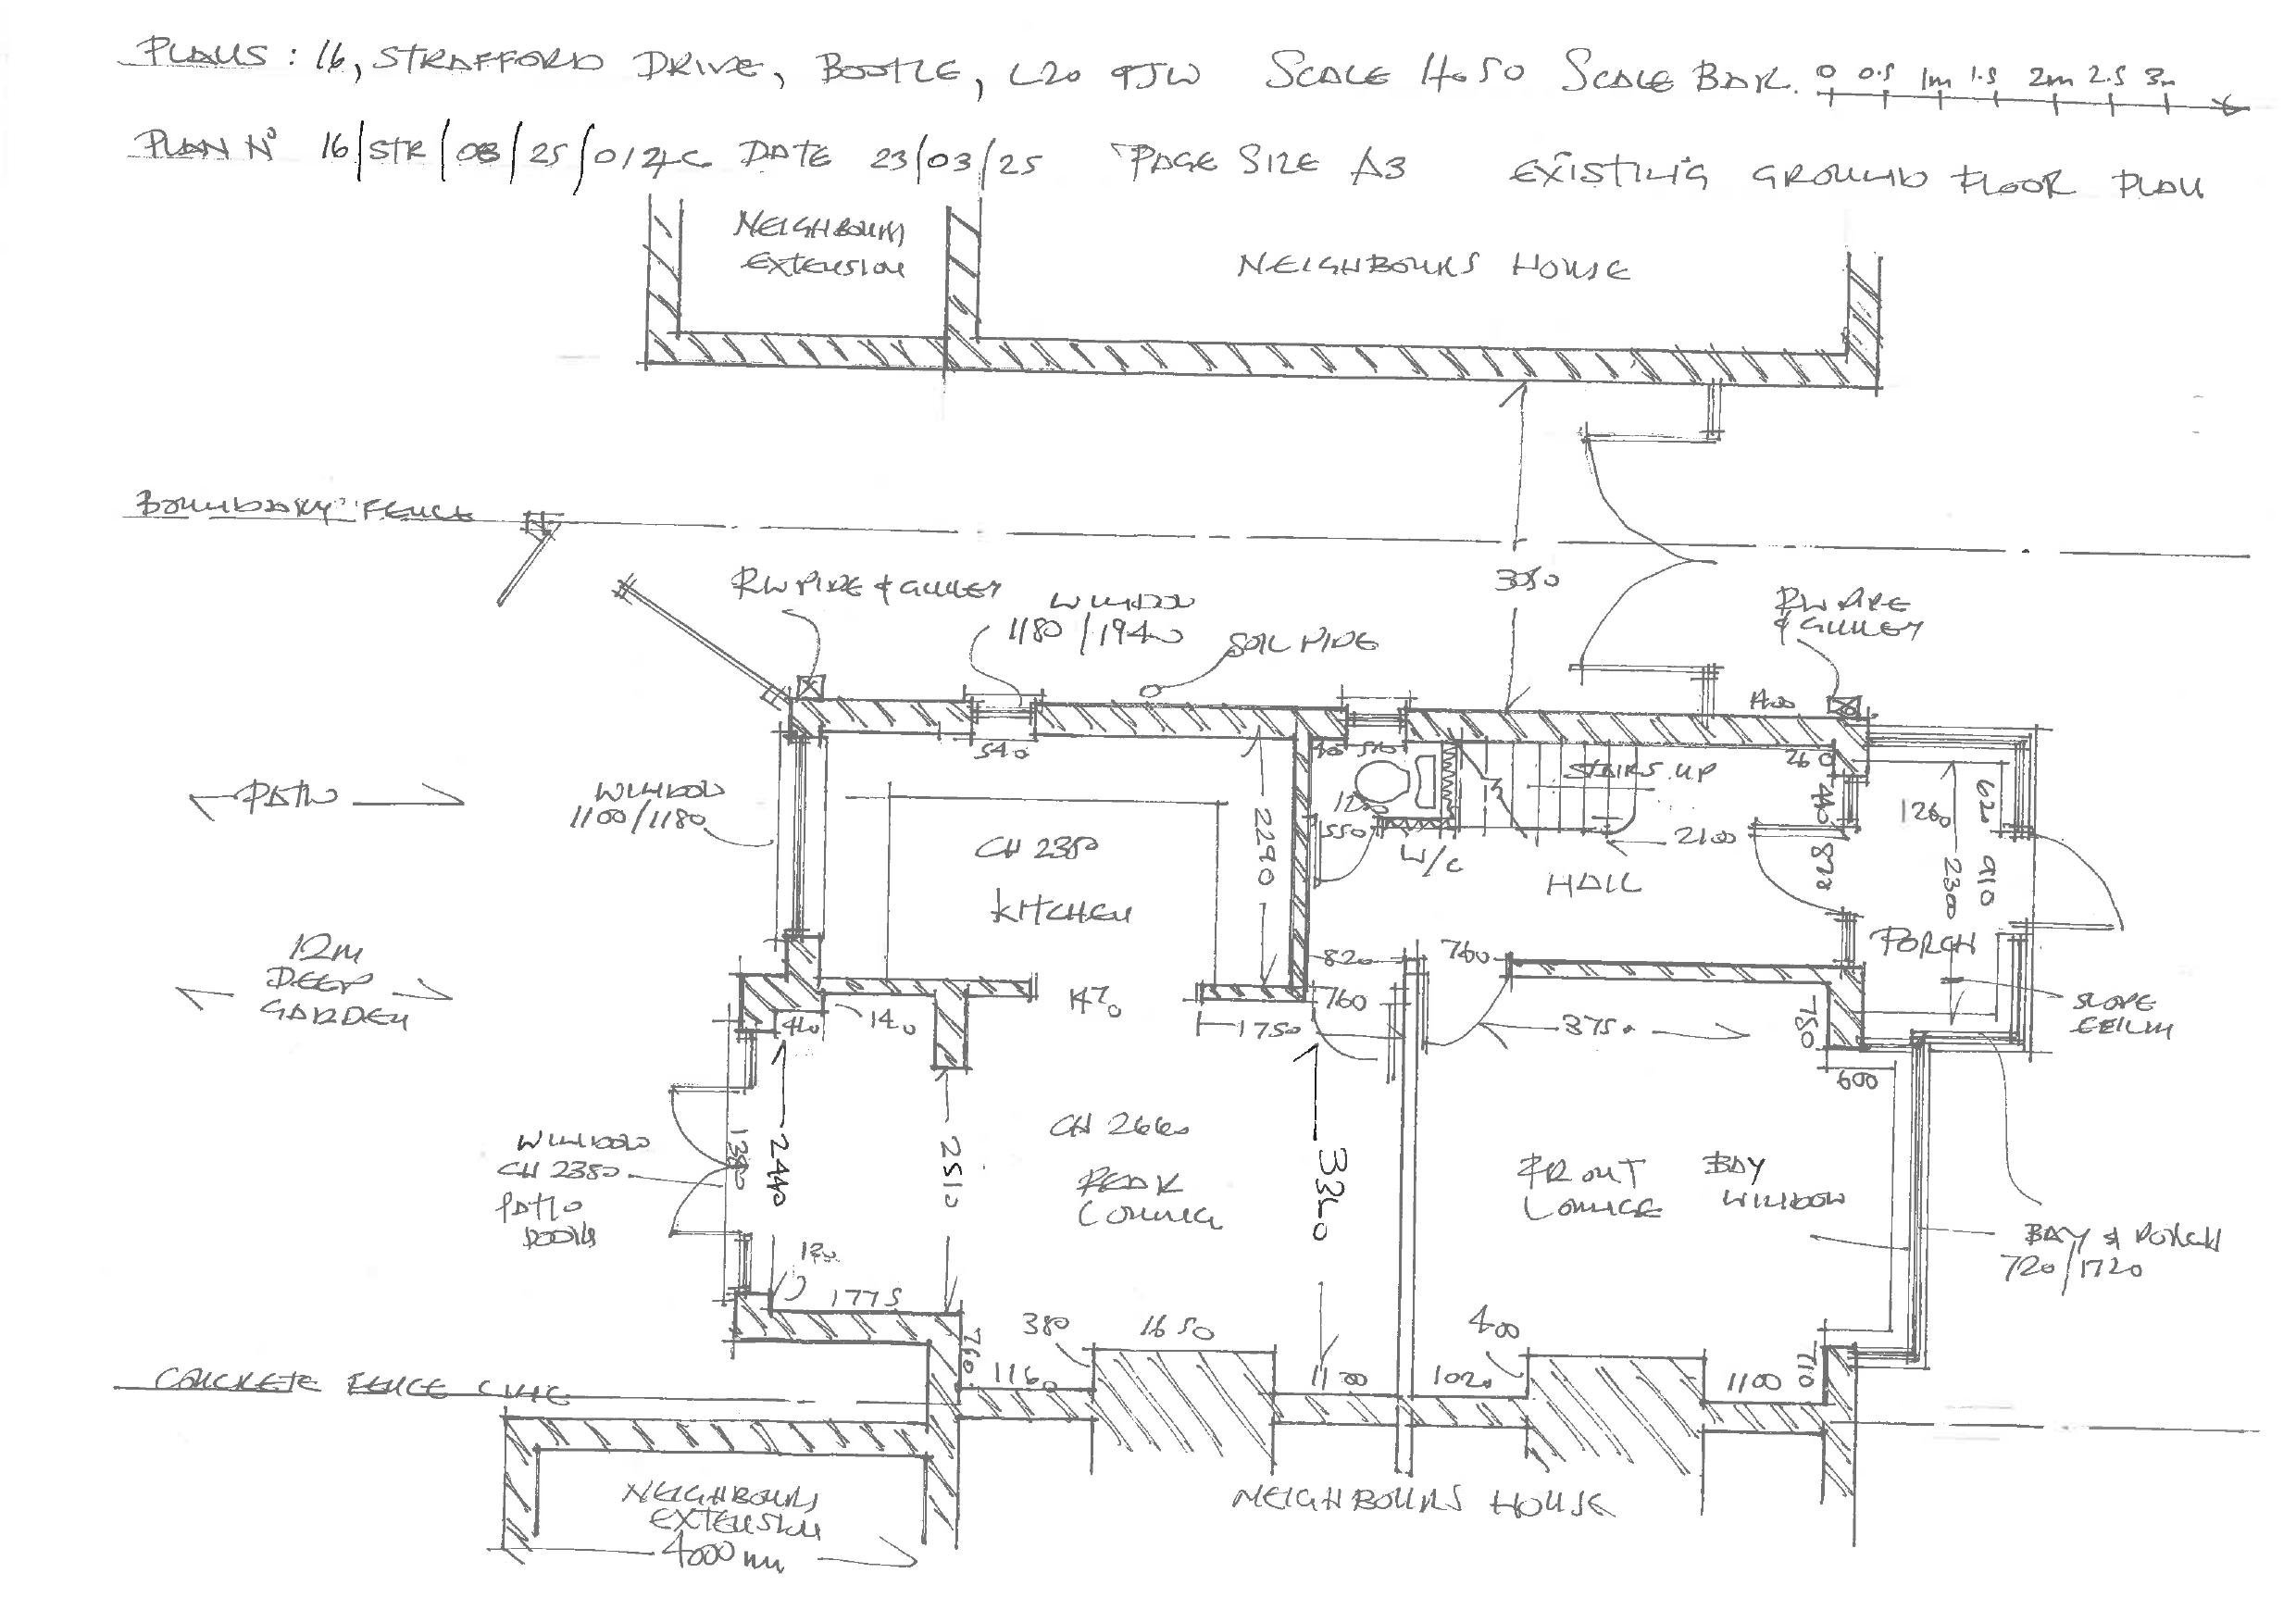 PLANS : 16, STRAFFORD DRIVE, BOOTLE, L20 9JW SCALE 1to50 SCALE BAR. 0 0.5 1m 1.5 2m 2.5 3m
PLAN No 16/STR/03/25/01 DATE 23/03/25 PAGE SIZE A3 EXISTING GROUND FLOOR PLAN
NEIGHBOURS
EXTENSION
NEIGHBOURS HOUSE
BOUNDARY FENCE
3050
RW PIPE & GULLEY
WINDOW
1180/1940
SOIL PIPE
RW PIPE
& GULLEY
540
260
STAIRS UP
PATH
WINDOW
1100/1180
CH 2380
KITCHEN
2290
550
W/C
2100
HALL
440
828
1260
620
910
2300
PORCH
12M
DEEP
GARDEN
820
760
760
1750
140
3750
780
600
SLOPE
CEILIN
WINDOW
CH 2380
PATIO
DOORS
2440
2510
CH 2660
REAR
LOUNGE
3340
FRONT
LOUNGE
BAY
WINDOW
BAY & PORCH
720/1720
1775
380
1650
760
1160
1100
1020
400
1100
710
CONCRETE FENCE LINE
NEIGHBOURS
EXTENSION
4000mm
NEIGHBOURS HOUSE